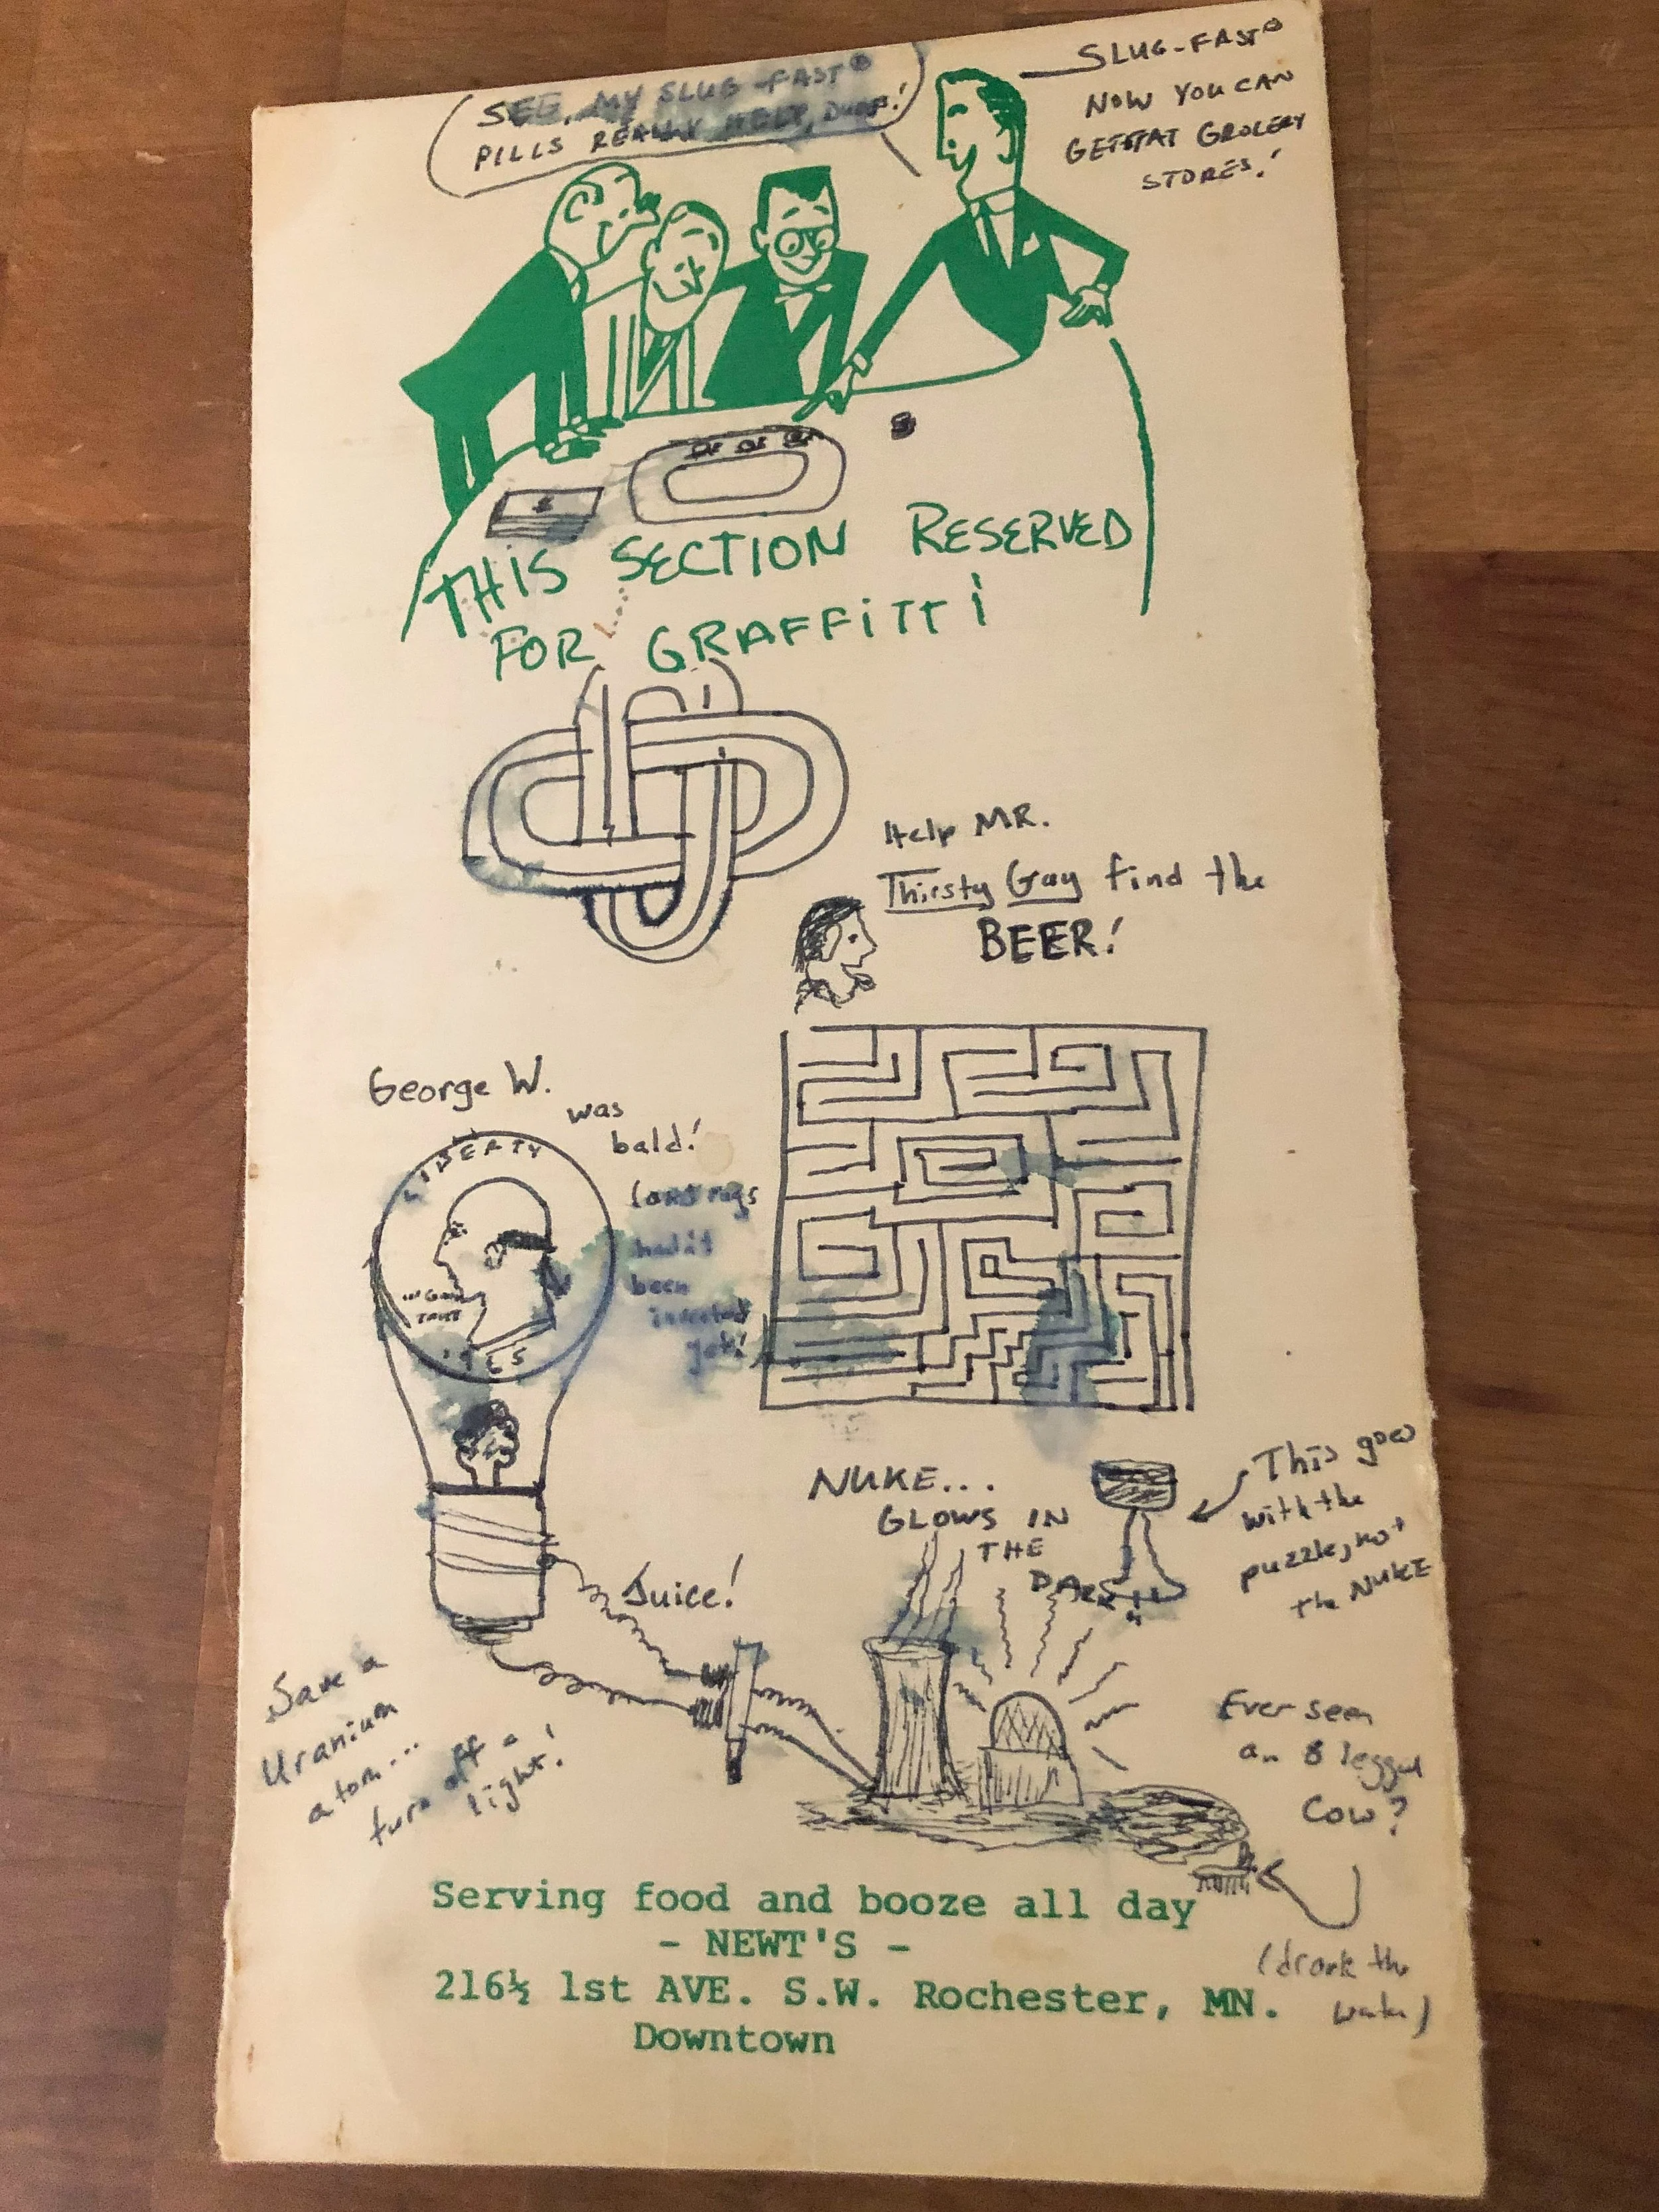 SEE, MY SLUG-FAST®
PILLS REALLY HELP,
SLUG-FAST®
NOW YOU CAN
GET AT GROCERY
STORES!
THIS SECTION RESERVED
FOR GRAFFITTI
Help MR.
Thirsty Guy find the
BEER!
George W.
was
bald!
hadn't
been
invented
yet!
LIBERTY
IN GOD
TRUST
NUKE...
GLOWS IN
THE
DARK
This goes
with the
puzzle, not
the NUKE
Juice!
Save a
Uranium
atom...
turn off a
light!
Ever seen
an 8 legged
Cow?
(drank the
water)
Serving food and booze all day
- NEWT'S -
216½ 1st AVE. S.W. Rochester, MN.
Downtown